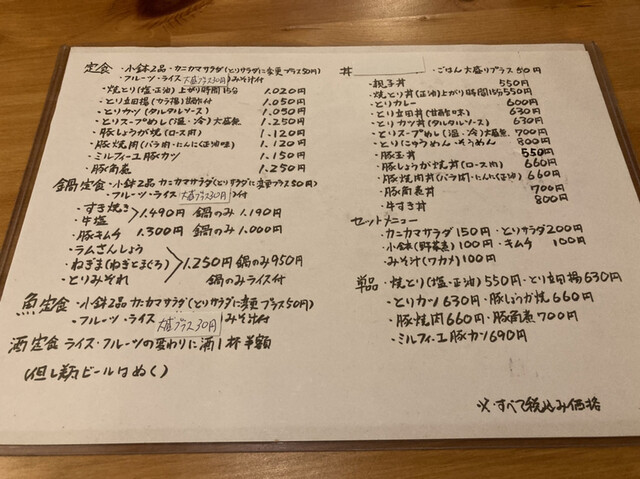 定食 ・小鉢2品・カニカマサラダ(とりサラダに変更プラス50円)
・フルーツ・ライス 大盛プラス30円 みそ汁付
・焼とり(塩・正油)上がり時間15分 1.020円
・とり立田揚(カラ揚) 1.050円
・とりカツ(タルタルソース) 1.050円
・とりスープめし(温・冷)大葉無 1.250円
・豚しょうが焼(ロース肉) 1.120円
・豚焼肉(バラ肉・にんにく正油味) 1.120円
・ミルフィーユ豚カツ 1.150円
・豚角煮 1.250円
鍋定食・小鉢2品 カニカマサラダ(とりサラダに変更プラス50円)
・フルーツ・ライス 大盛プラス30円 付
・すき焼き
・牛塩
1.490円 鍋のみ 1.190円
・豚キムチ 1.300円 鍋のみ 1.000円
・ラムさんしょう
・ねぎま(ねぎとまぐろ)
・とりみぞれ
1.250円 鍋のみ950円
鍋のみライス付
魚定食 ・小鉢2品 カニカマサラダ(とりサラダに変更プラス50円)
・フルーツ・ライス 大盛プラス30円 みそ汁付
酒定食 ライス・フルーツの変わりに酒1杯半額
(但し ビールはぬく)
丼 ・ごはん大盛りプラス50円
・親子丼 550円
・焼とり丼(正油)上がり時間15分 550円
・とりカレー 600円
・とり立田丼(甘酢味) 630円
・とりカツ丼(タルタルソース) 630円
・とりスープめし(温・冷)大葉無 700円
・とりにゅうめん・そうめん 800円
・豚玉丼 550円
・豚しょうが焼丼(ロース肉) 660円
・豚焼肉丼(バラ肉・にんにく正油) 660円
・豚角煮丼 700円
・牛すき丼 800円
セットメニュー
・カニカマサラダ 150円・とりサラダ200円
・小鉢(野菜煮)100円・キムチ 100円
・みそ汁(ワカメ)100円
単品 ・焼とり(塩・正油)550円・とり立田揚630円
・とりカツ 630円・豚しょうが焼 660円
・豚焼肉660円・豚角煮700円
・ミルフィーユ豚カツ690円
※・すべて税込み価格